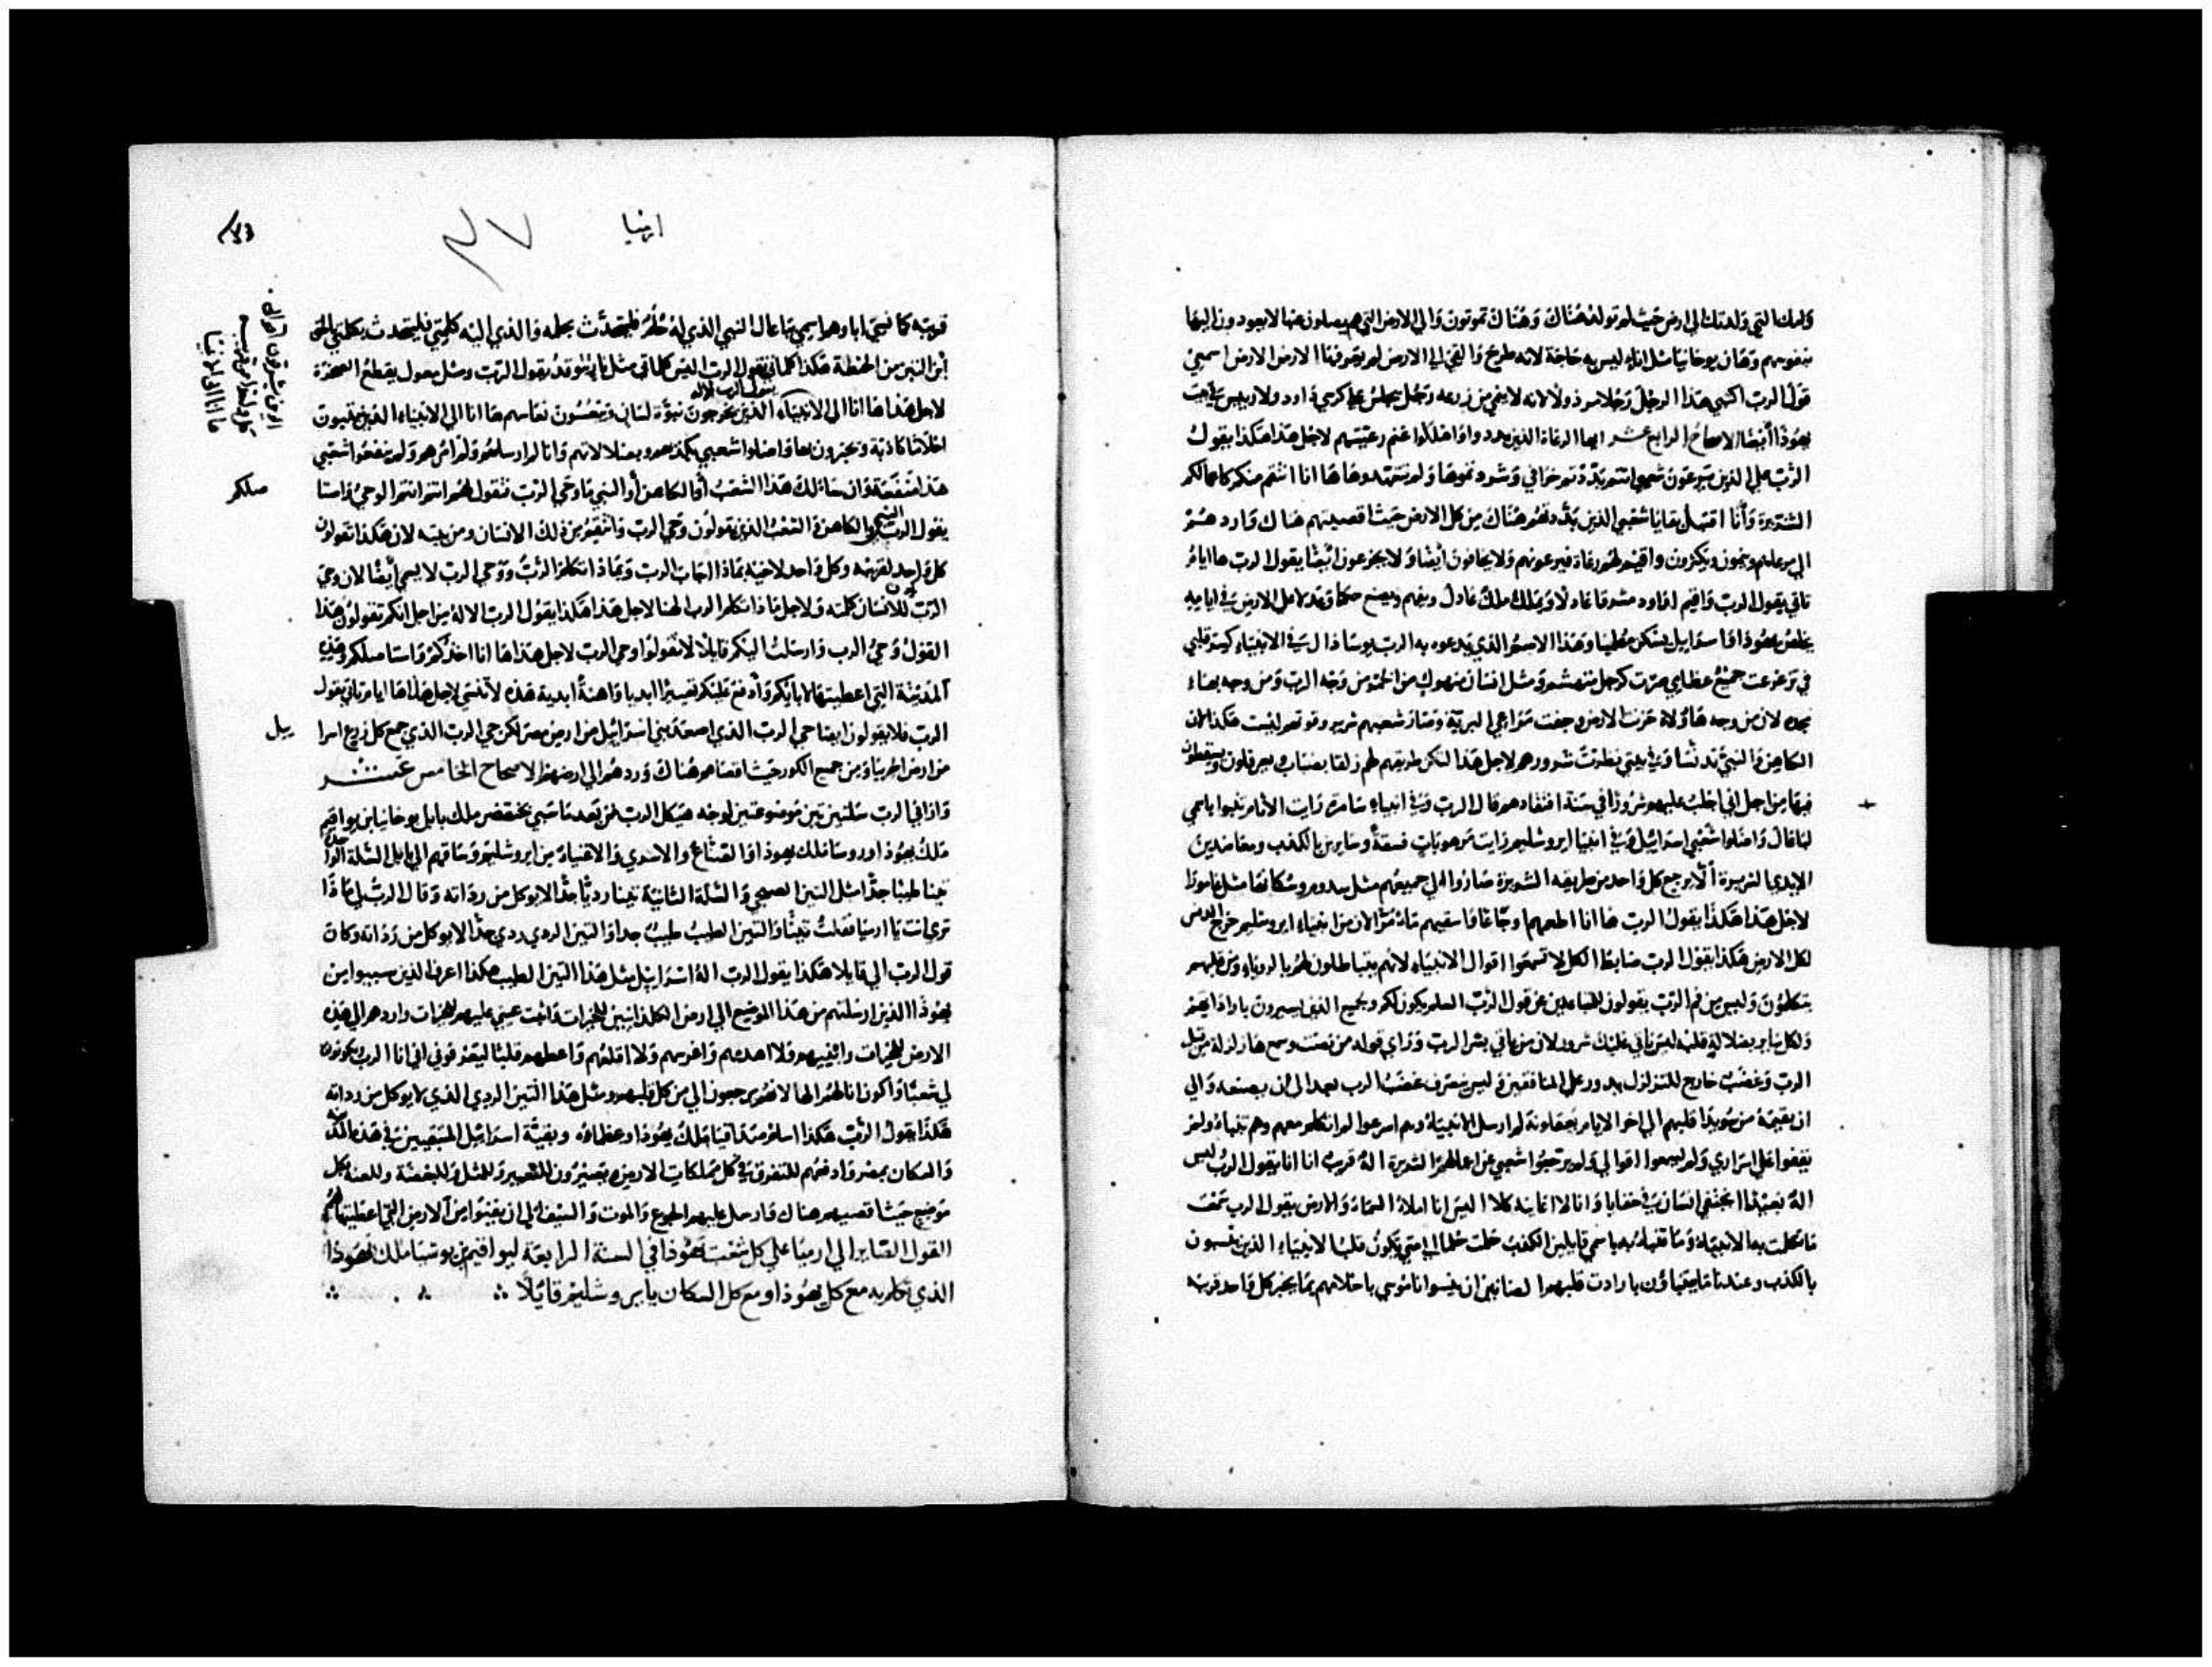 وامك التي ولدتك الى ارض حيث لم تولد هناك وهناك تموتون والى الارض التي هم يصلون عنها لا يعودون اليها
بنفوسهم وهان يوخانيا مثل اناء ليس به حاجة لانه طرح والقي الى الارض لم يعرفها الارض الارض اسمعي
قول الرب اكتبي هذا الرجل رجلا مرذولا لانه لا ينمي من زرعه رجل يجلس على كرسي داود ولا رييس في بيت
يهوذا ايضا الاصحاح الرابع عشر ايها الرعاة الذين بددوا واهلكوا غنم رعيتهم لاجل هذا هكذا يقول
الرب على الذين يرعون شعبي انتم بددتم خرافي وشردتموها ولم تتعهدوها ها انا انتقم منكم كاعمالكم
الشريرة وانا اقتبل بقايا شعبي الذين بددتهم هناك من كل الارض حيث اقصيتهم هناك واردهم
الى مرعاهم وينمون ويكثرون واقيم لهم رعاة فيرعونهم ولا يخافون ايضا ولا يجزعون ايضا يقول الرب ها ايام
تاتي يقول الرب واقيم لداود مشرقا عادلا ويملك ملك عادل ويفهم ويصنع حكما وعدلا على الارض في ايامه
يخلص يهوذا واسراييل يسكن مطمينا وهذا الاسم الذي يدعوه به الرب يوساذاك في الانبياء كسر قلبي
في تزعزعت جميع عظامي صرت كرجل منهشم ومثل انسان منهوك من الخمر من وجه الرب ومن وجه بهاء
مجده لان من وجه هاولاء حزنت الارض وجفت مراعي البرية وصار سعيهم شرير وقوتهم ليست هكذا لان
الكاهن والنبي تدنسا وفي بيتي نظرت شرورهم لاجل هذا لتكن طريقهم لهم زلقا بضباب ويعرقلون ويسقطون
فيها من اجل اني اجلب عليهم شرورا في سنة افتقادهم قال الرب وفي انبياء سامرة رايت الاثام تنبوا باسم
لباعال واضلوا شعبي اسراييل وفي انبيا ايروشليم رايت مرهوبات فسقة وسايرين بالكذب ومعاضدين
الايدي الشريرة الا يرجع كل واحد من طريقه الشريرة صاروا لي جميعهم مثل سدوم وسكانها مثل غامورا
لاجل هذا هكذا يقول الرب ها انا اطعمهم اوجاعا واسقيهم ماء مرا لان من انبياء ايروشليم خرج الدنس
لكل الارض هكذا يقول الرب ضابط الكل لا تسمعوا اقوال الانبياء لانهم يتباطلون لهم بالروياء ومن قلبهم
يتكلمون وليس من فم الرب يقولون للمتباعدين عن قول الرب السلم يكون لكم وجميع الذين يسيرون بارادتهم
ولكل ساير بضلالة قلبه ليس ياتي عليك شرور لان من ياتي بشر الرب وراي قوله من نصت وسمع ها زلزلة من قبل
الرب وغضب خارج للتزلزل يدور على المنافقين وليس ينصرف غضب الرب بعد الى ان يصنعه والى
ان يقيمه من نوبة قلبهم الى اخر الايام يعقلونه لم ارسل الانبياء وهم اسرعوا لم اتكلم معهم وهم تنباء ولو
يقفوا على اسراري ولم يسمعوا اقوالي ولم يرجعوا شعبي عن اعمالهم الشريرة اله قريب انا انا يقول الرب ليس
اله بعيد اما يختفي انسان في خفايا وانا لا اعاينه كلا اليس انا املاء السماء والارض يقول الرب سمعت
ما تكلمت به الانبياء وما تنباء به باسمي قايلين الكذب حلمت حلما الى متى يكون قلب الانبياء الذين يتنبون
بالكذب وعندما يتنباؤن بارادت قلبهم الظانين ان ينسوا ناموسي باحلامهم بما يخبر كل واحد قريبه
ارميا
٤٧
قريبه كما نسي اباوهم اسمي بباعال النبي الذي له حلم فليتحدث بحلمه والذي اليه كلمتي فليتحدث بكلمتي بالحق
اين التبن من الحنطة هكذا كلماتي يقول الرب اليس كلماتي مثل نار تتوقد يقول الرب ومثل معول يقطع الصخرة
يقول الرب الاله
لاجل هذا ها انا الى الانبياء الذين يخرجون نبوة لسان وينعسون نعاسهم ها انا الى الانبياء الذين يتنبون
احلاما كاذبة ويخبرون بها واضلوا شعبي بكذبهم وبضلالاتهم وانا لم ارسلهم ولم امرهم ولم ينفعوا شعبي
هذا منفعة وان سالك هذا الشعب او الكاهن او النبي ما وحي الرب فتقول لهم انتم انتم الوحي واستا
صلكم
يقول الرب والنبي والكاهن والشعب الذين يقولون وحي الرب وانتقم من ذلك الانسان ومن بيته لان هكذا تقولون
كل واحد لقريبه وكل واحد لاخيه بماذا اجاب الرب وبماذا تكلم الرب ووحي الرب لا يسمى ايضا لان وحي
الرب يكون للانسان كلمته ولاجل ماذا تكلم الرب الهنا لاجل هذا هكذا يقول الرب الاله من اجل انكم تقولون هذا
القول وحي الرب وارسلت اليكم قايلا لا تقولوا وحي الرب لاجل هذا ها انا اخذكم واستاصلكم وهذه
المدينة التي اعطيتها لاباءكم وادفع عليكم تعييرا ابديا واهنة ابدية هذه لا تنسى لاجل هذا ها ايام تاتي يقول
الرب فلا يقولون ايضا حي الرب الذي اصعد بني اسراييل من ارض مصر لكن حي الرب الذي جمع كل زرع اسرا
ييل
من ارض الجربيا ومن جميع الكور حيث اقصاهم هناك وردهم الى ارضهم الاصحاح الخامس عشر
واراني الرب سلتين تين موضوعتين لوجه هيكل الرب من بعد ما سبي بختنصر ملك بابل يوخانيا بن يواقيم
ملك يهوذا وروسا ملك يهوذا والصناع والاسرى والاغنياء من ايروشليم وساقهم الى بابل السلة الواحدة
تينا طيبا جدا مثل التين الصيفي والسلة الثانية تينا رديا جدا لا يوكل من رداته وقال الرب لي ماذا
ترى انت يا ارميا فقلت تينا والتين الطيب طيب جدا والتين الردي ردي جدا لا يوكل من رداته وكان
قول الرب الي قايلا هكذا يقول الرب اله اسراييل مثل هذا التين الطيب هكذا اعرف الذين سبيوا من
يهوذا الذين ارسلتهم من هذا الموضع الى ارض الكلدانيين للخيرات واثبت عيني عليهم للخيرات واردهم الى هذه
الارض للخيرات وابنيهم ولا اهدمهم واغرسهم ولا اقلعهم واعطيهم قلبا ليعرفوني اني انا الرب ويكونون
لي شعبا واكون انا لهم الها لانهم يرجعون الي من كل قلبهم ومثل هذا التين الردي الذي لا يوكل من رداته
هكذا يقول الرب هكذا اسلم صدقيا ملك يهوذا وعظماءه وبقية اسراييل المتبقيين في هذه المدينة
والسكان بمصر وادفعهم للتفرق في كل مملكات الارض ويصيرون للتعيير وللمثل وللبغضة وللعنة بكل
موضع حيث اقصيهم هناك وارسل عليهم الجوع والموت والسيف الى ان يفنوا من الارض التي اعطيتها لهم
القول الصاير الى ارميا على كل شعب يهوذا في السنة الرابعة ليواقيم بن يوسيا ملك يهوذا
الذي تكلم به مع كل يهوذا ومع كل السكان بايروشليم قايلا